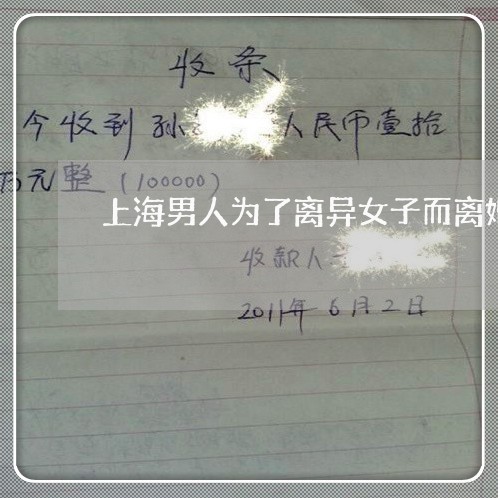 收条
今收到孙 人民币壹拾
万元整(100000)
上海男人为了离异女子而离婚
收款人
2011年6月2日